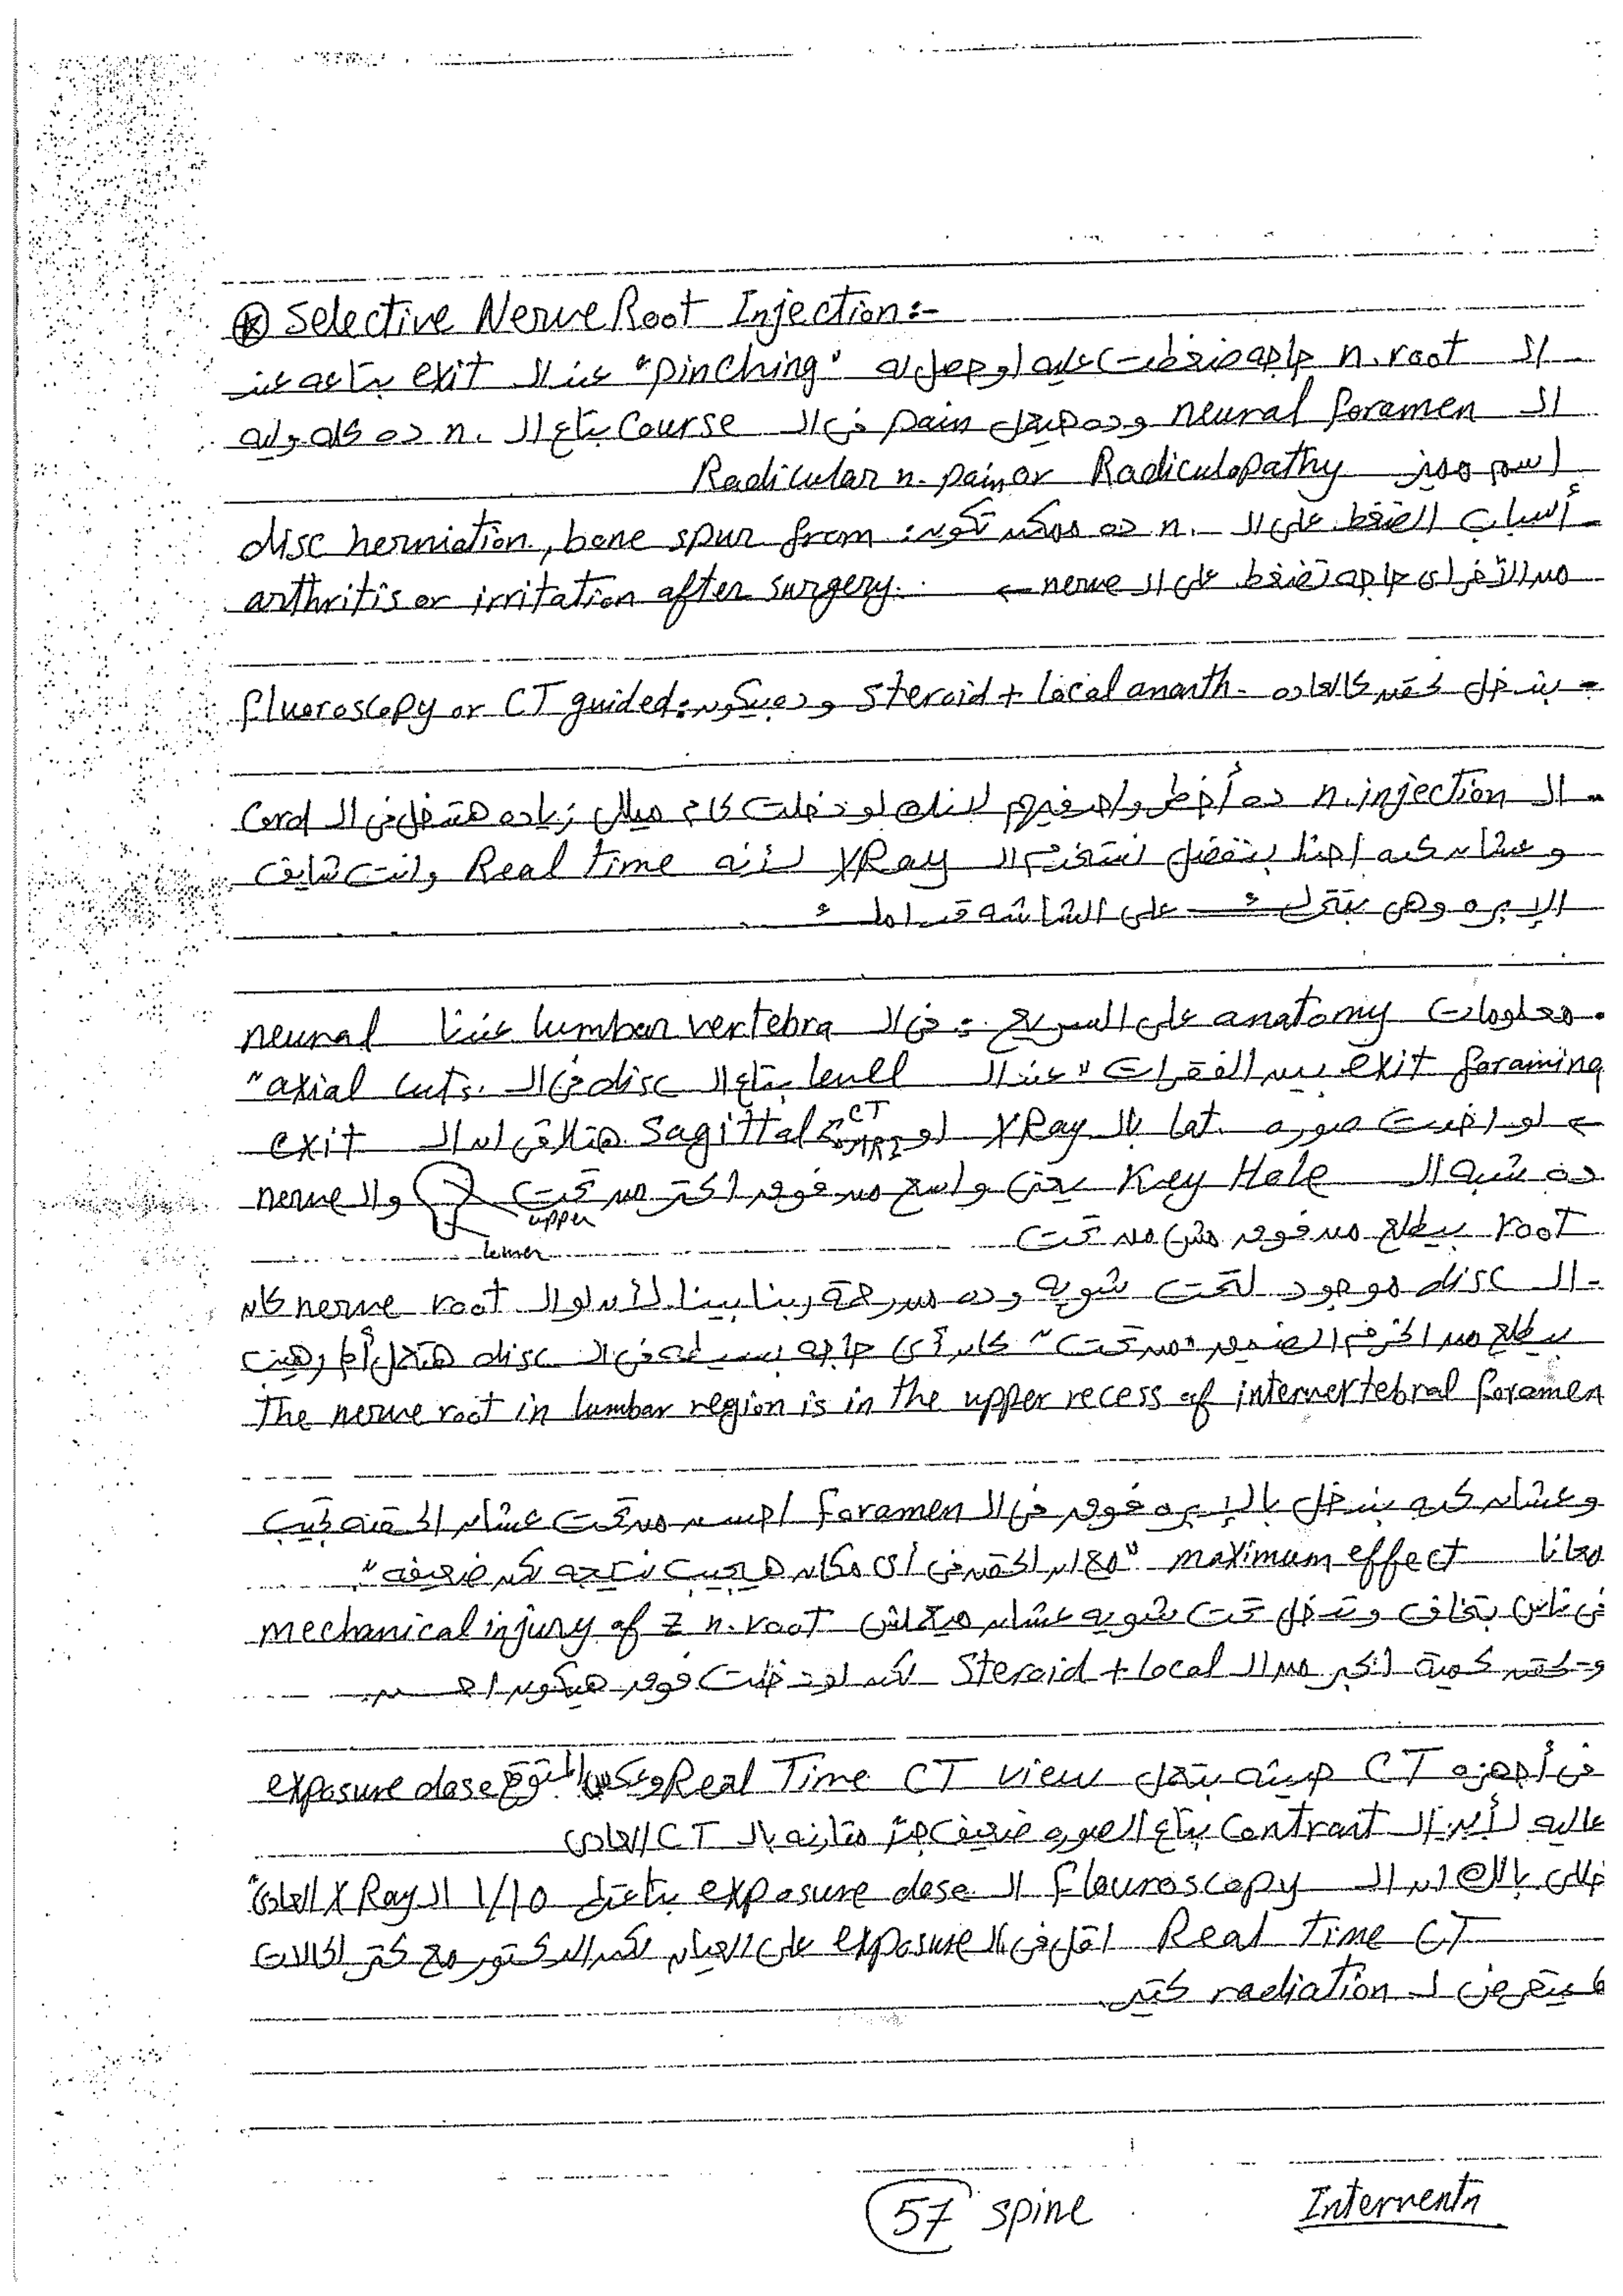 ⊛ Selective Nerve Root Injection:-
ال n. root حاجه ضغطت عليه او حصل له "pinching" عند ال exit بتاعه عند
ال neural foramen وده هيعمل pain فى ال Course بتاع ال n. ده كله وليه
اسم مميز Radicular n. pain or Radiculopathy
- أسباب الضغط على ال n. ده ممكن تكون: disc herniation, bone spur from
arthritis or irritation after surgery. ← من الآخر اى حاجه تضغط على ال nerve
- بندخل نحقن كالعاده steroid + local anasth. وده بيكون: fluoroscopy or CT guided
- ال n. injection ده أخطر واحد فيهم لانك لو دخلت كام مللى زياده هتدخل فى ال Cord
وعشان كده احنا بنفضل نستخدم ال XRay لأنه Real time وانت شايف
الإبره وهى بتتحرك على الشاشه قدامك
• معلومات anatomy على السريع : فى ال lumbar vertebra عندنا neural
exit foramina بين الفقرات "عند ال level بتاع ال disc فى ال axial cuts."
← لو اخدت صوره lat. بال XRay او Sagittal CT or MRI هتلاقى ان ال exit
ده شبه ال Key Hole يعنى واسع من فوق اكتر من تحت وال nerve
upper
lower
root بيطلع من فوق مش من تحت
- ال disc موجود لتحت شويه وده من رحمة ربنا بينا لأن لو ال nerve root كان
بيطلع من الخرم الضيق "من تحت" كان أى حاجه بسيطه فى ال disc هتعمل ألم رهيب
The nerve root in lumbar region is in the upper recess of intervertebral foramen
وعشان كده بندخل بالإبره فوق فى ال foramen احسن من تحت عشان الحقنه تجيب
معانا maximum effect "مع ان الحقن فى أى مكان هيجيب نتيجه لكن ضعيفه"
فى ناس بتخاف وتدخل تحت شويه عشان ميعملش mechanical injury of z n. root
وتحقن كمية اكبر من ال Steroid + local لكن لو دخلت فوق هيكون احسن
فى أجهزه CT حديثه بتعمل Real Time CT view وعكس المتوقع exposure dose
عاليه لأن ال Contrast بتاع الصوره ضعيف جدًا مقارنه بال CT العادى
خلى بالك ان ال flouroscopy ال exposure dose بتاعته 1/10 ال X Ray العادى"
Real Time CT اقل فى ال exposure على العيان لكن الدكتور مع كتر الحالات
بيتعرض ل radiation كتير
57 spine
Interventn